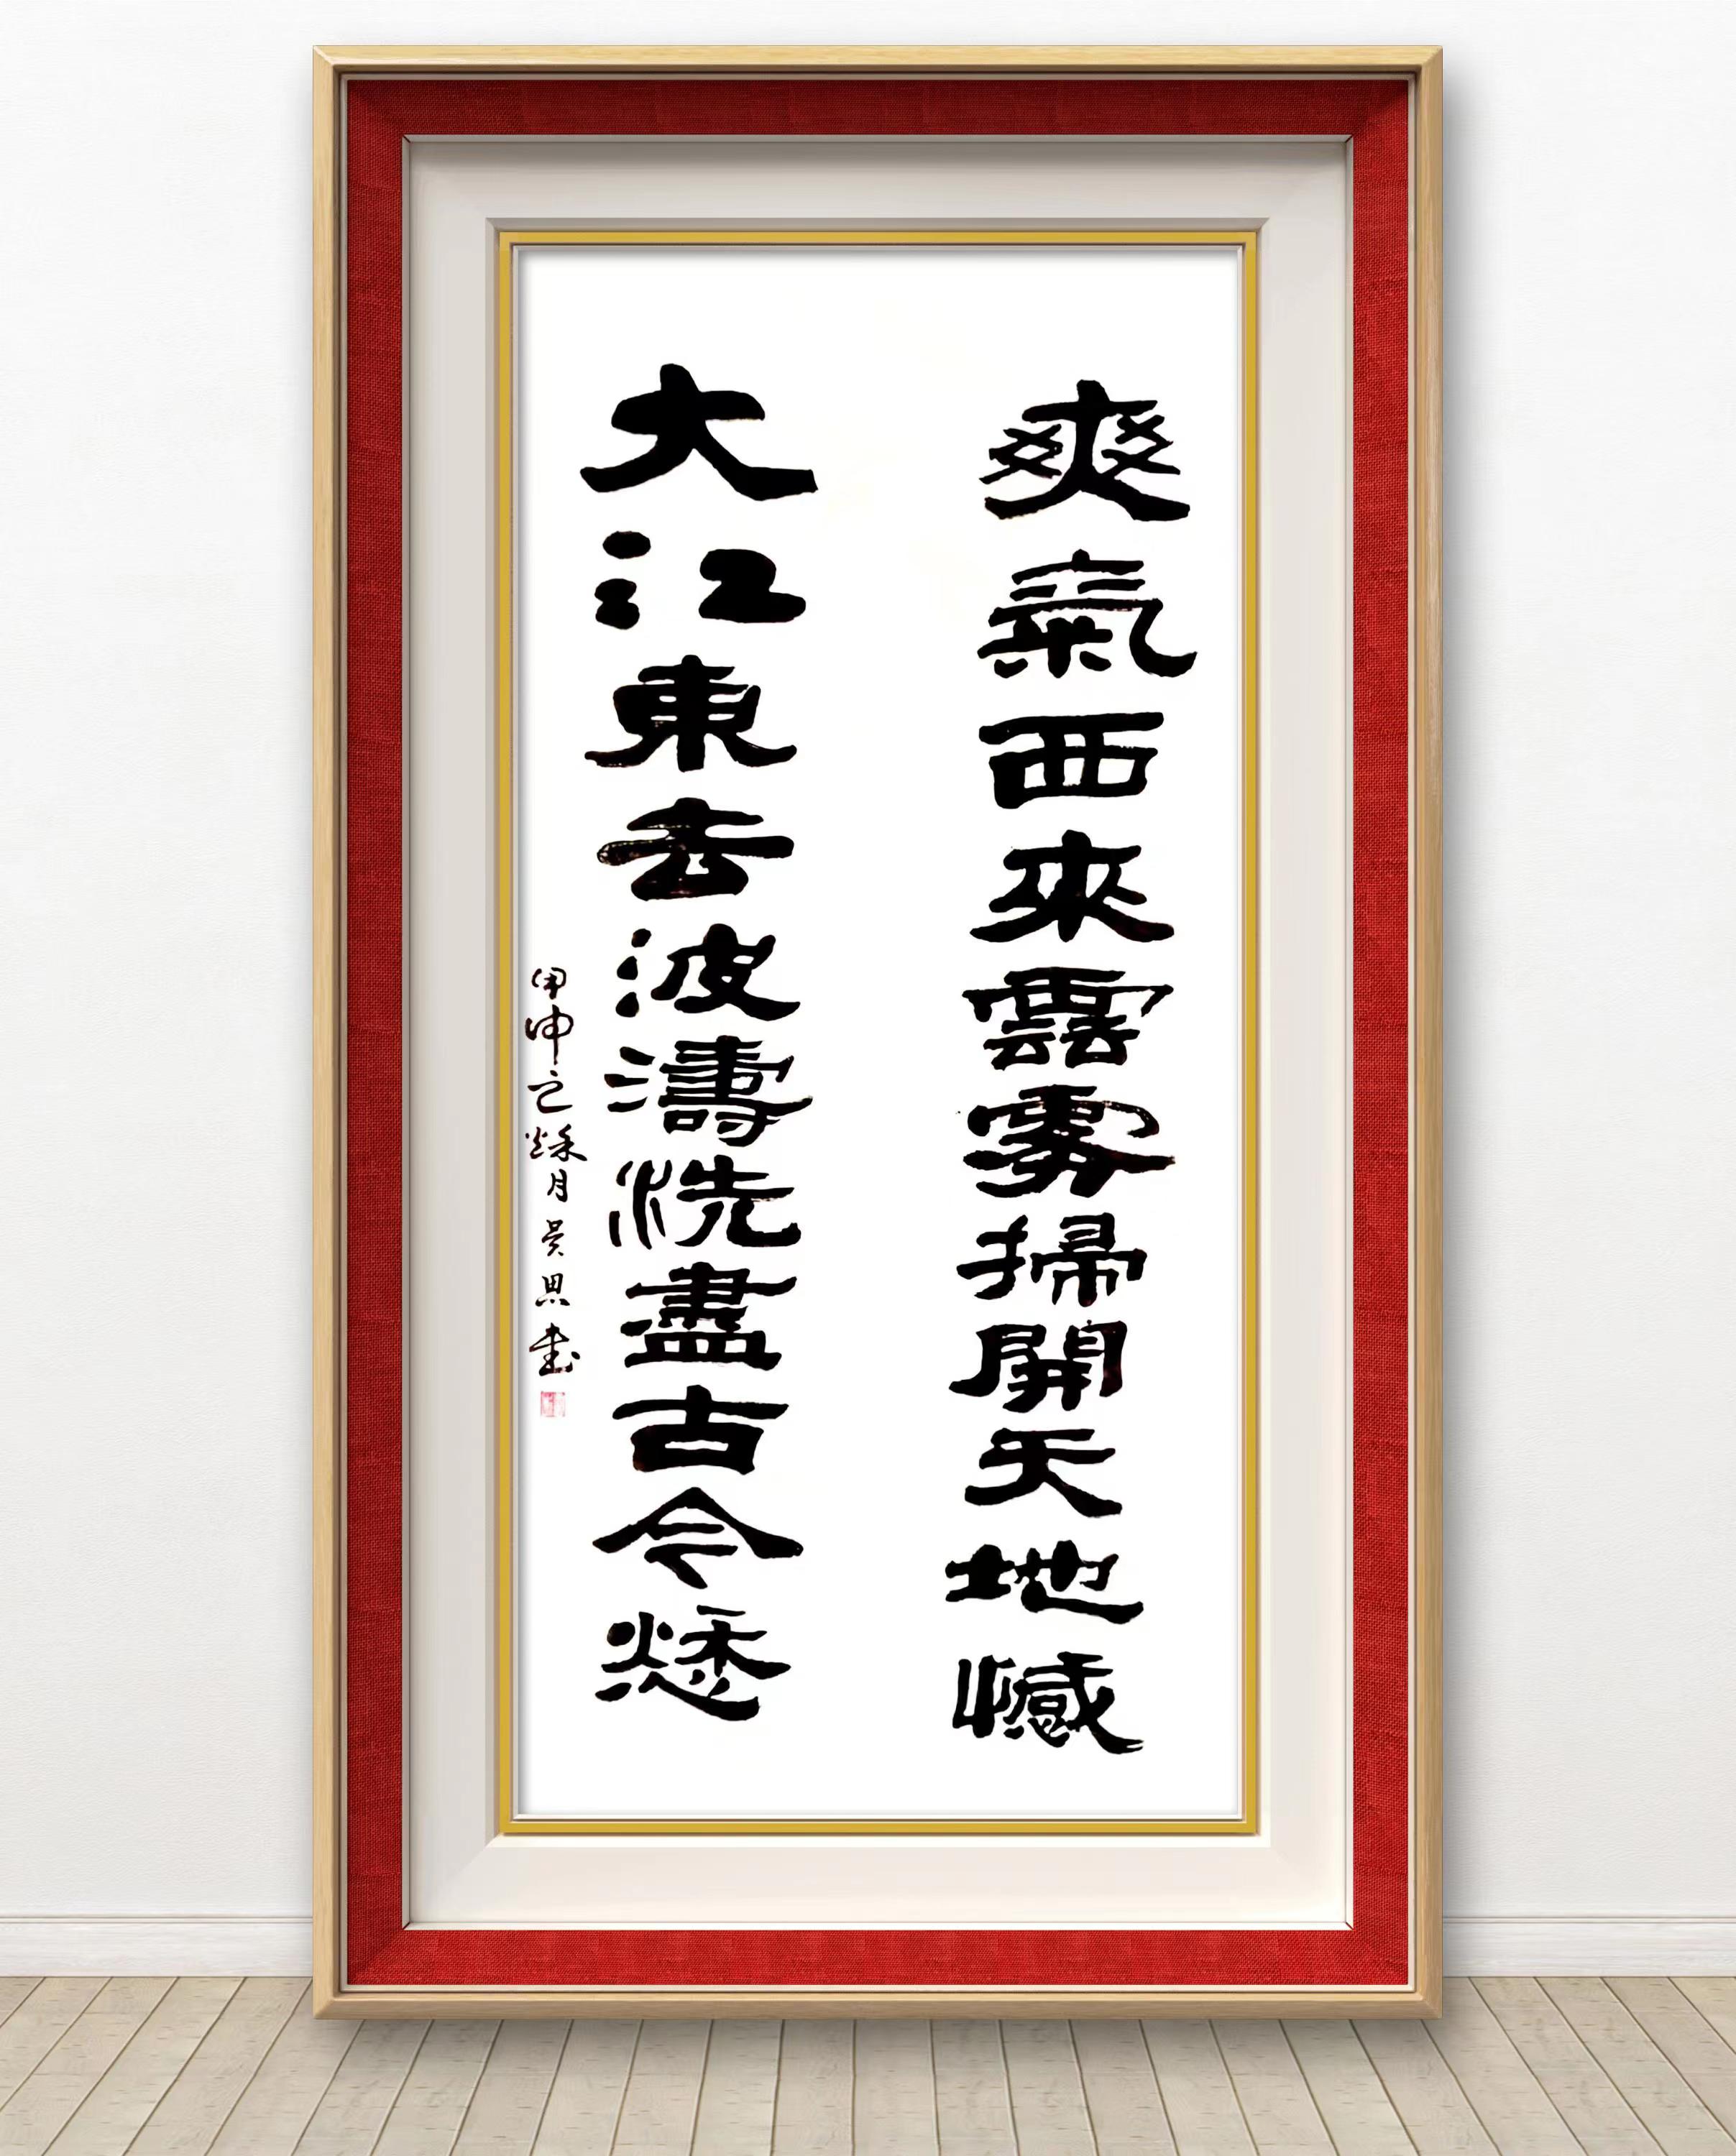 爽氣西來雲霧掃開天地憾
大江東去波濤洗盡古今愁
甲申之秋月吴思書